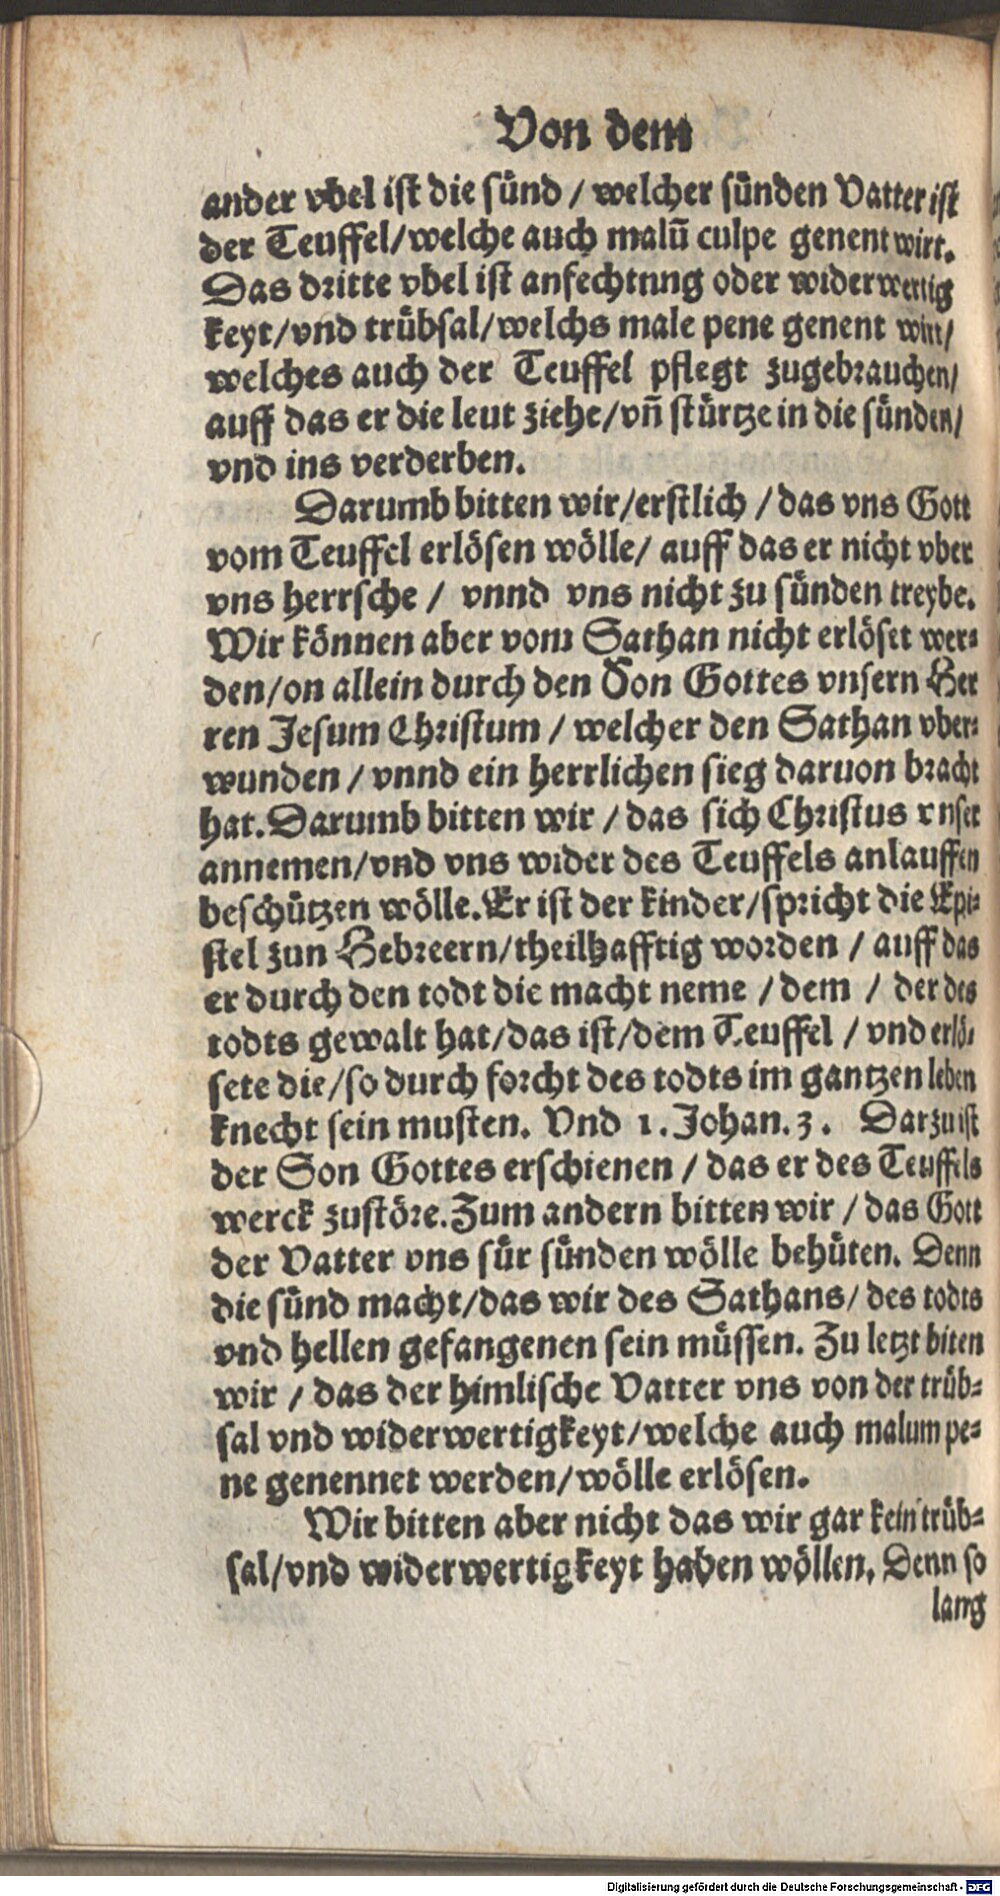 Von dem
ander vbel ist die sünd / welcher sünden Vatter ist
der Teuffel/welche auch malū culpe genent wirt.
Das dritte vbel ist anfechtnng oder widerwertig
keyt/vnd trübsal/welchs male pene genent wirt/
welches auch der Teuffel pflegt zugebrauchen/
auff das er die leut ziehe/vñ stürtze in die sünden/
vnd ins verderben.
Darumb bitten wir/erstlich / das vns Gott
vom Teuffel erlösen wölle/ auff das er nicht vber
vns herrsche / vnnd vns nicht zu sünden treybe.
Wir können aber vom Sathan nicht erlöset wer-
den/on allein durch den Son Gottes vnsern Her
ren Jesum Christum / welcher den Sathan vber-
wunden / vnnd ein herrlichen sieg daruon bracht
hat. Darumb bitten wir / das sich Christus vnser
annemen/vnd vns wider des Teuffels anlauffen
beschützen wölle. Er ist der kinder/spricht die Epi-
stel zun Hebreern/theilhafftig worden / auff das
er durch den todt die macht neme / dem / der des
todts gewalt hat/das ist/dem Teuffel / vnd erlö-
sete die/so durch forcht des todts im gantzen leben
knecht sein musten. Vnd 1. Johan. 3. Darzu ist
der Son Gottes erschienen / das er des Teuffels
werck zustöre. Zum andern bitten wir / das Gott
der Vatter vns für sünden wölle behüten. Denn
die sünd macht/das wir des Sathans/ des todts
vnd hellen gefangenen sein müssen. Zu letzt biten
wir / das der himlische Vatter vns von der trüb-
sal vnd widerwertigkeyt/welche auch malum pe-
ne genennet werden/wölle erlösen.
Wir bitten aber nicht das wir gar kein trüb-
sal/vnd widerwertigkeyt haben wöllen. Denn so
lang
Digitalisierung gefördert durch die Deutsche Forschungsgemeinschaft - DFG